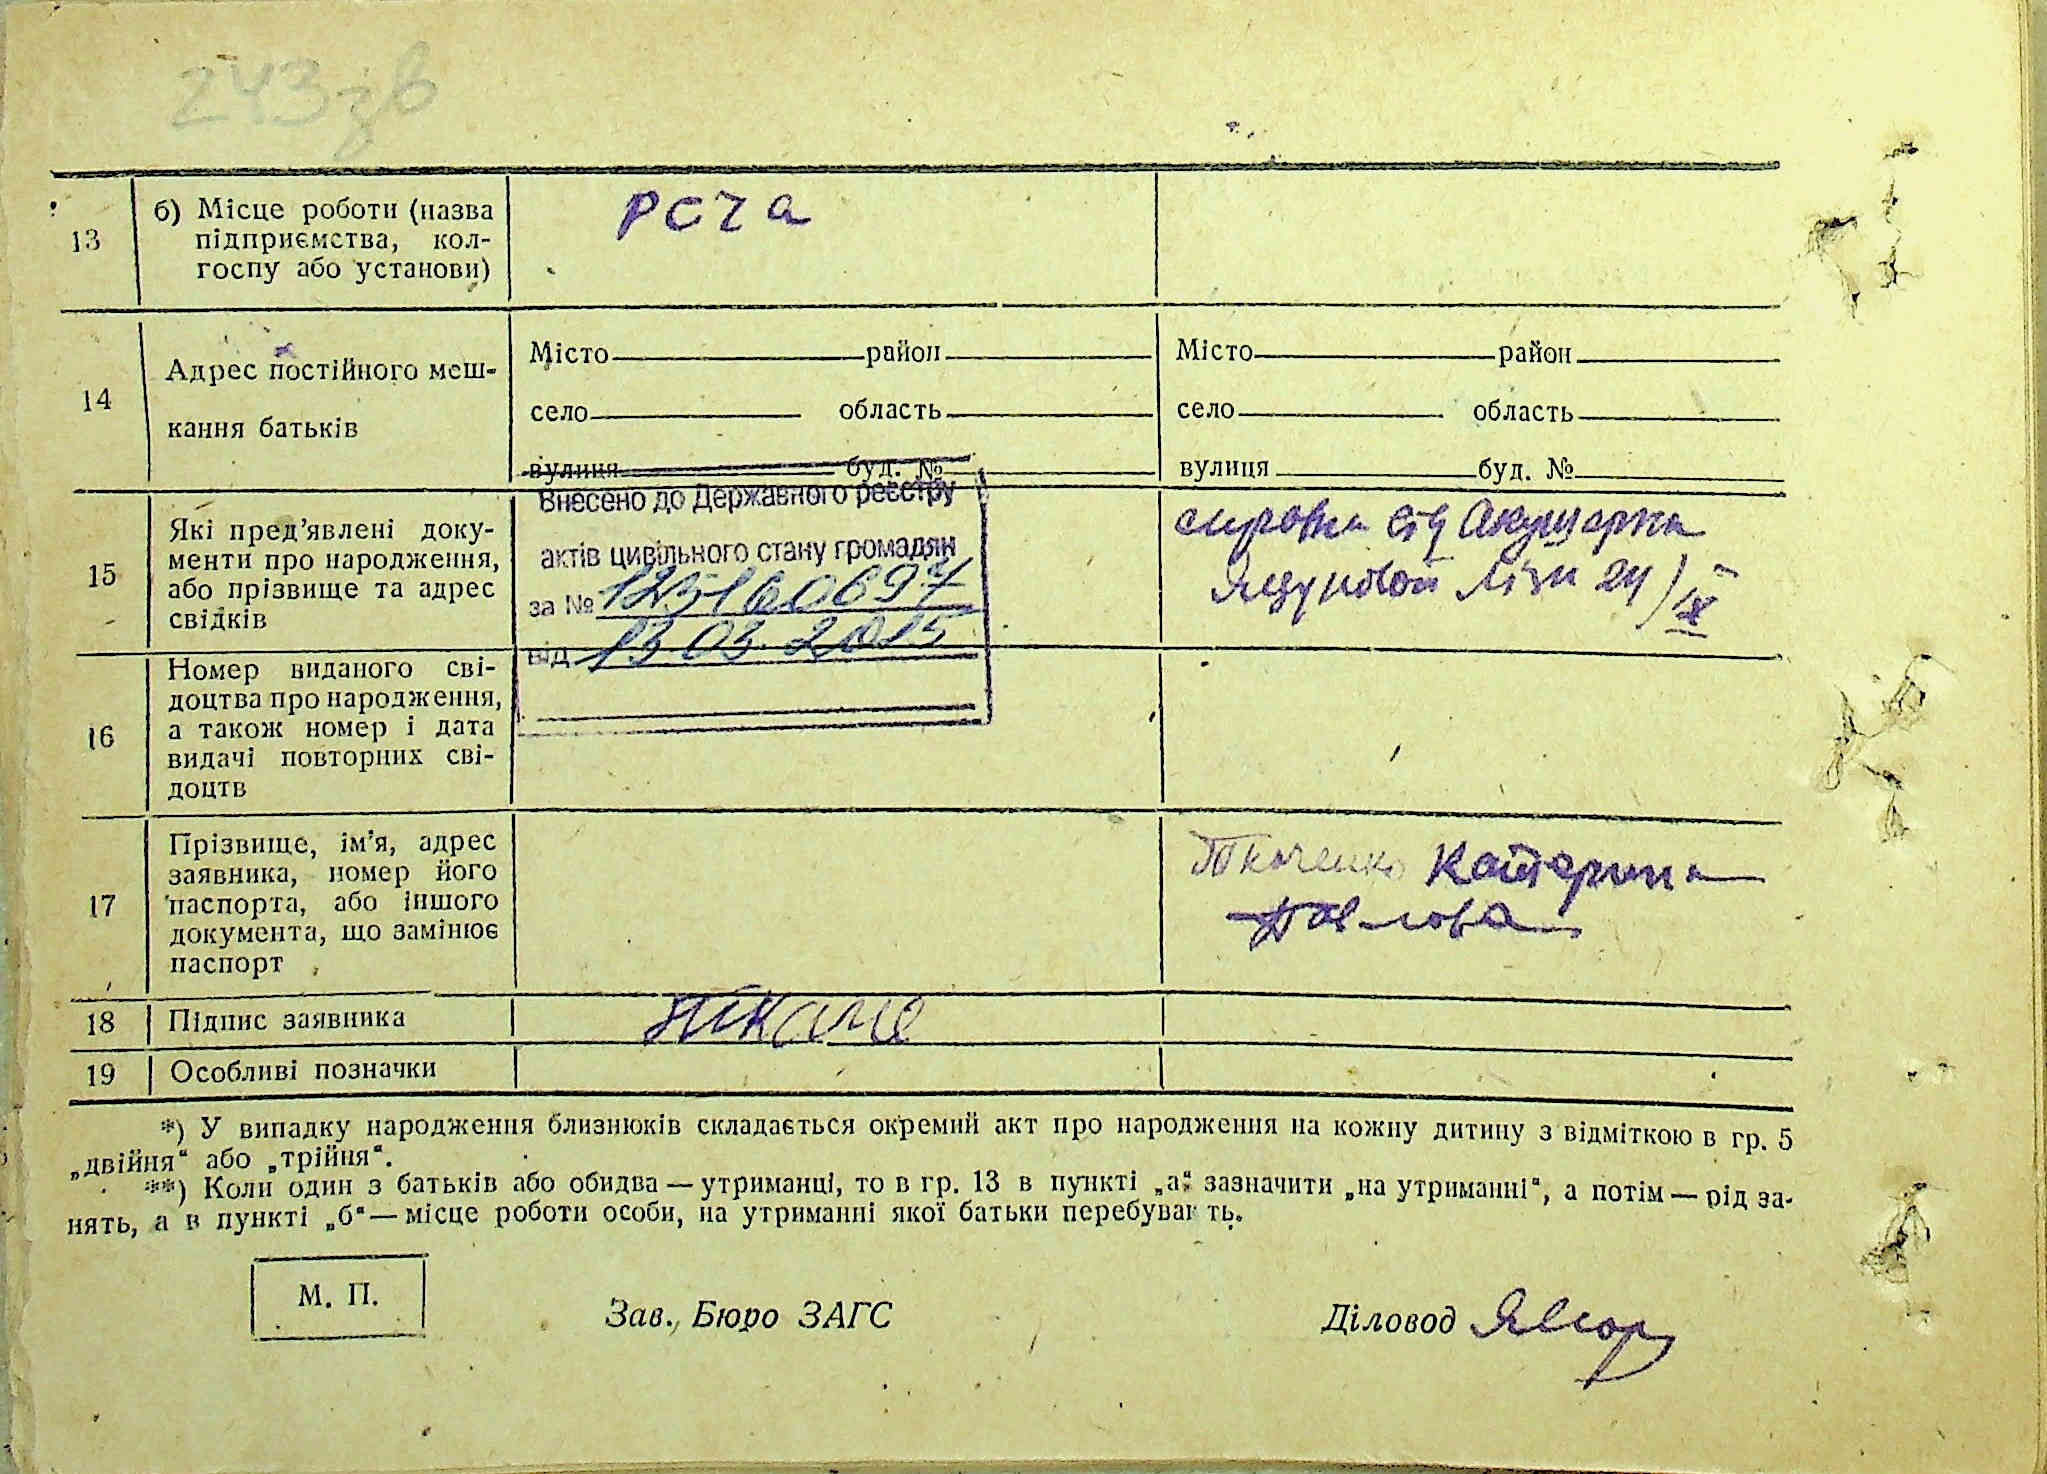 243 зв
13
б) Місце роботи (назва
підприємства, кол-
госпу або установи)
РСЧА
14
Адрес постійного меш-
кання батьків
Місто район
село область
вулиця буд. №
Місто район
село область
вулиця буд. №
15
Які пред’явлені доку-
менти про народження,
або прізвище та адрес
свідків
Внесено до Державного реєстру
актів цивільного стану громадян
за № 12516 0697
від 13 03. 2015
Акушерка
Лізи 24/IX
16
Номер виданого сві-
доцтва про народження,
а також номер і дата
видачі повторних сві-
доцтв
17
Прізвище, ім’я, адрес
заявника, номер його
паспорта, або іншого
документа, що замінює
паспорт
Ткаченко Катерина
Павлова
18
Підпис заявника
19
Особливі позначки
*) У випадку народження близнюків складається окремий акт про народження на кожну дитину з відміткою в гр. 5
„двійня“ або „трійня“.
**) Коли один з батьків або обидва — утриманці, то в гр. 13 в пункті „а“ зазначити „на утриманні“, а потім — рід за-
нять, а в пункті „б“ — місце роботи особи, на утриманні якої батьки перебувають.
М. П.
Зав. Бюро ЗАГС
Діловод